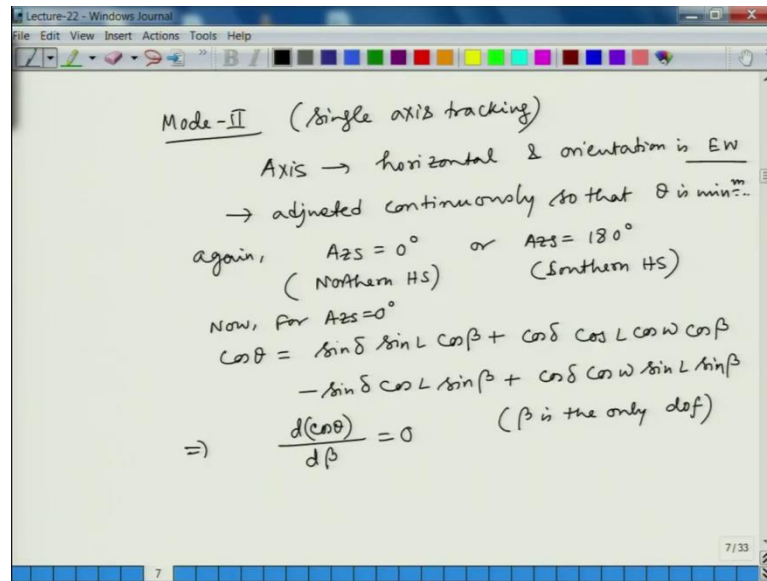 Lecture-22 - Windows Journal
File Edit View Insert Actions Tools Help
B I
Mode-II (single axis tracking)
Axis → horizontal & orientation is EW
→ adjusted continuously so that θ is minᵐ.
again, Azs = 0° or Azs = 180°
(Northern HS) (Southern HS)
Now, For Azs=0°
cosθ = sinδ sinL cosβ + cosδ cosL cosω cosβ
- sinδ cosL sinβ + cosδ cosω sinL sinβ
⇒ d(cosθ)/dβ = 0 (β is the only dof)
7/33
7